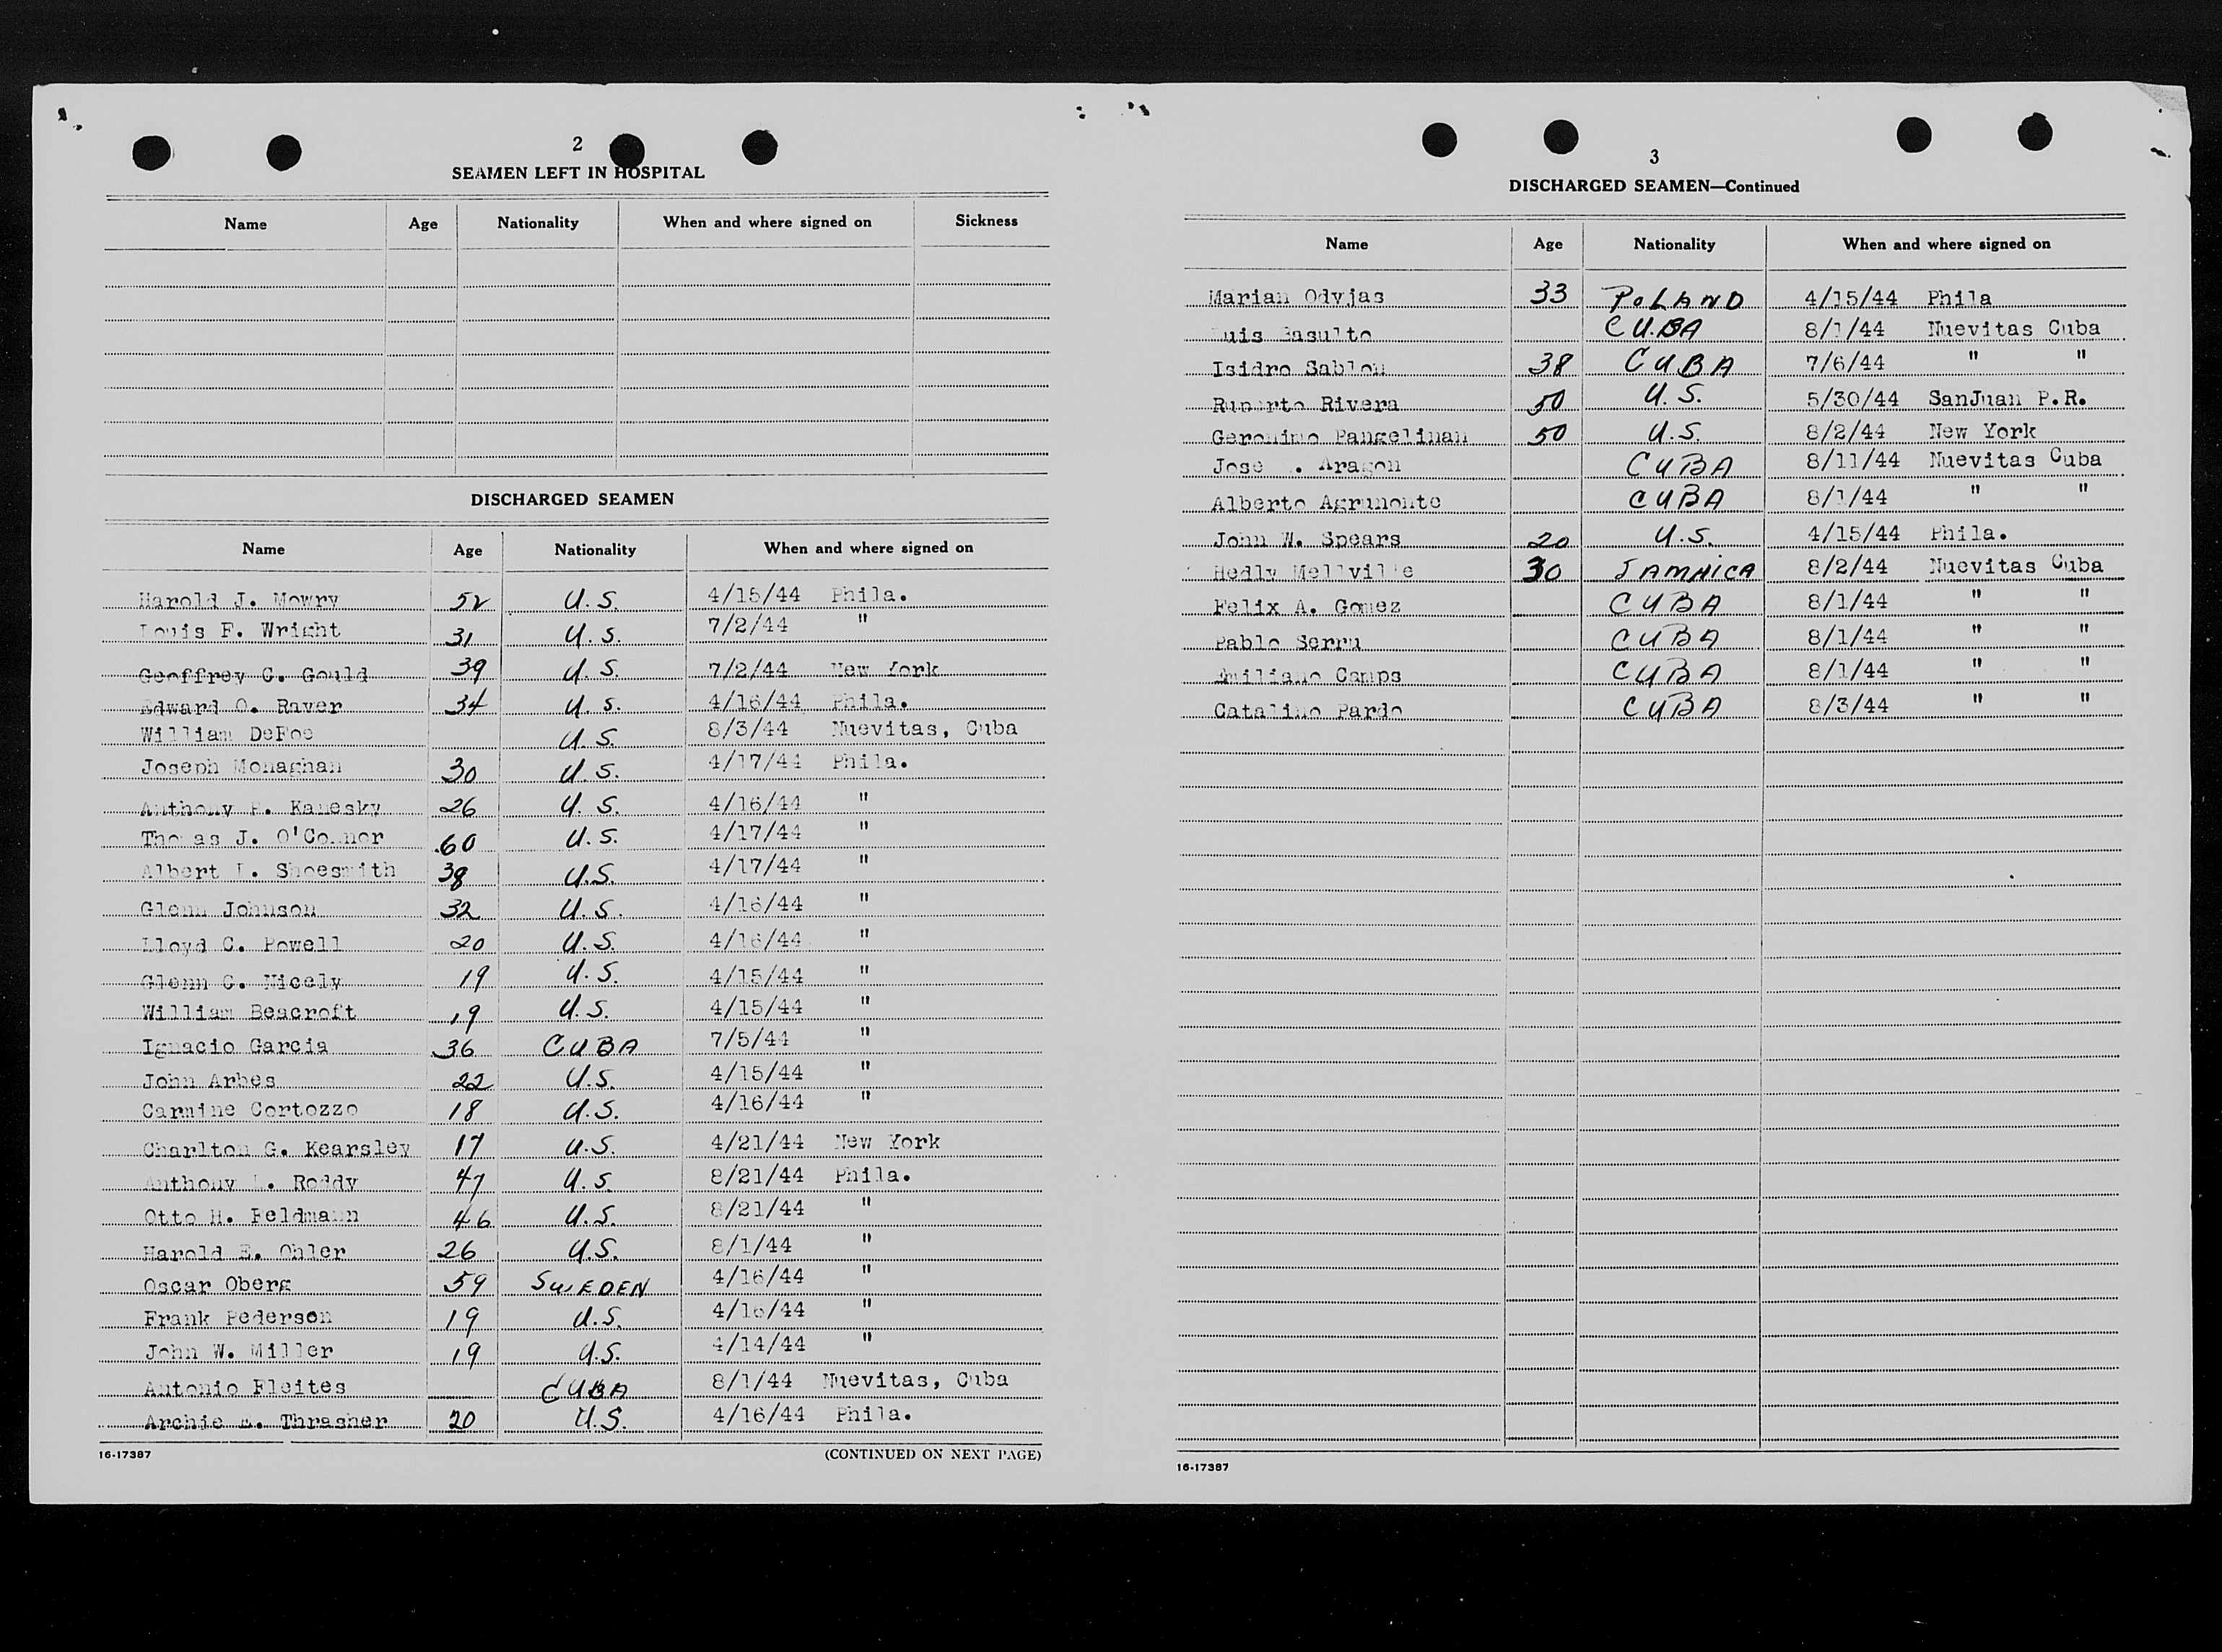 2
SEAMEN LEFT IN HOSPITAL
Name Age Nationality When and where signed on Sickness
DISCHARGED SEAMEN
Name Age Nationality When and where signed on
Harold J. Mowry 52 U.S. 4/15/44 Phila.
Louis F. Wright 31 U.S. 7/2/44 "
Geoffrey C. Gould 39 U.S. 7/2/44 New York
Edward O. Raver 34 U.S. 4/16/44 Phila.
William DeFoe U.S. 8/3/44 Nuevitas, Cuba
Joseph Monaghan 30 U.S. 4/17/44 Phila.
Anthony P. Kanesky 26 U.S. 4/16/44 "
Thomas J. O'Connor 60 U.S. 4/17/44 "
Albert L. Shoesmith 38 U.S. 4/17/44 "
Glenn Johnson 32 U.S. 4/16/44 "
Lloyd C. Powell 20 U.S. 4/16/44 "
Glenn G. Nicely 19 U.S. 4/15/44 "
William Beacroft 19 U.S. 4/15/44 "
Ignacio Garcia 36 CUBA 7/5/44 "
John Arbes 22 U.S. 4/15/44 "
Carmine Cortozzo 18 U.S. 4/16/44 "
Charlton G. Kearsley 17 U.S. 4/21/44 New York
Anthony Roddy 47 U.S. 8/21/44 Phila.
Otto H. Feldmann 46 U.S. 8/21/44 "
Harold E. Ohler 26 U.S. 8/1/44 "
Oscar Oberg 59 SWEDEN 4/16/44 "
Frank Pederson 19 U.S. 4/16/44 "
John W. Miller 19 U.S. 4/14/44 "
Antonio Fleites CUBA 8/1/44 Nuevitas, Cuba
Archie E. Thrasher 20 U.S. 4/16/44 Phila.
16-17387 (CONTINUED ON NEXT PAGE)
3
DISCHARGED SEAMEN—Continued
Name Age Nationality When and where signed on
Marian Odyjas 33 POLAND 4/15/44 Phila
Luis Basulto CUBA 8/1/44 Nuevitas Cuba
Isidro Sablon 38 CUBA 7/6/44 " "
Ruperto Rivera 50 U.S. 5/30/44 SanJuan P.R.
Geronimo Pangelinan 50 U.S. 8/2/44 New York
Jose Aragon CUBA 8/11/44 Nuevitas Cuba
Alberto Agrmonte CUBA 8/1/44 " "
John W. Spears 20 U.S. 4/15/44 Phila.
Hedly Mellville 30 JAMAICA 8/2/44 Nuevitas Cuba
Felix A. Gomez CUBA 8/1/44 " "
Pablo Serru CUBA 8/1/44 " "
Emiliano Camps CUBA 8/1/44 " "
Catalino Pardo CUBA 8/3/44 " "
16-17387